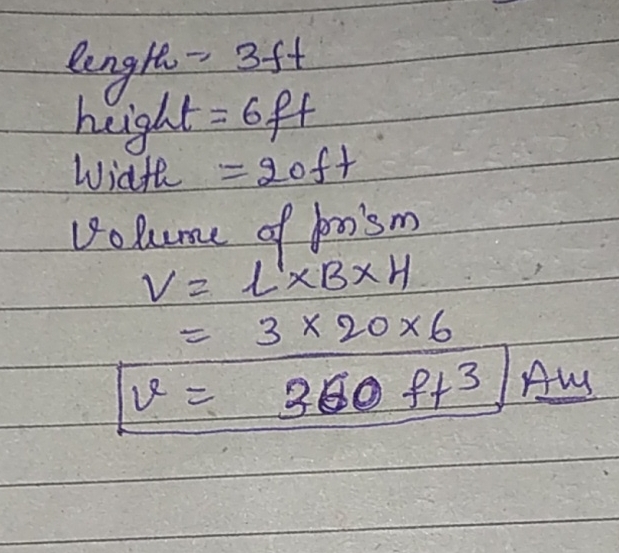 length = 3ft
height = 6ft
Width = 20ft
Volume of prism
V = L×B×H
= 3 × 20 × 6
v = 360 ft3 Ans